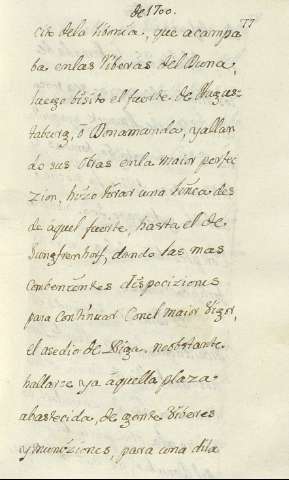 de 1700.
77
cito dela libonia, que acampa
ba enlas Riberas del Duna,
luego bisito el fuerte de Augus-
taburg, o Donamanda, yallan
do sus obras enla maior perfec
zion, hizo tirar una linea des
de aquel fuerte, hasta el de
Jungfrernhorf, dando las mas
combenientes disposiziones
para continuar Conel maior Vigor,
el asedio de Riga, noobstante
hallarze ya aquella plaza
abastecida, de gente Viberes
ymuniziones, para una dila